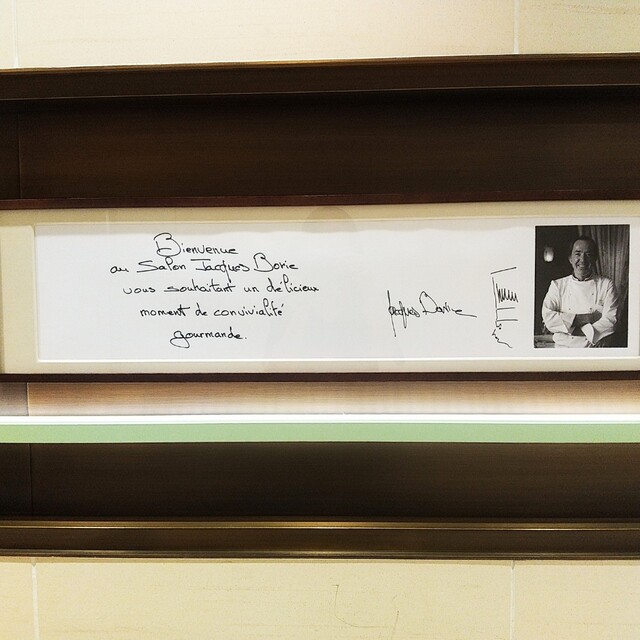 Bienvenue
au Salon Jacques Borie
vous souhaitant un délicieux
moment de convivialité
gourmande.
Jacques Borie